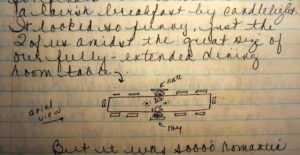 a lavish breakfast by candlelight.
It looked so funny, just the
2 of us amidst the great size of
our fully-extended dining
room table.
ariel
view
me
But it was soooo romantic